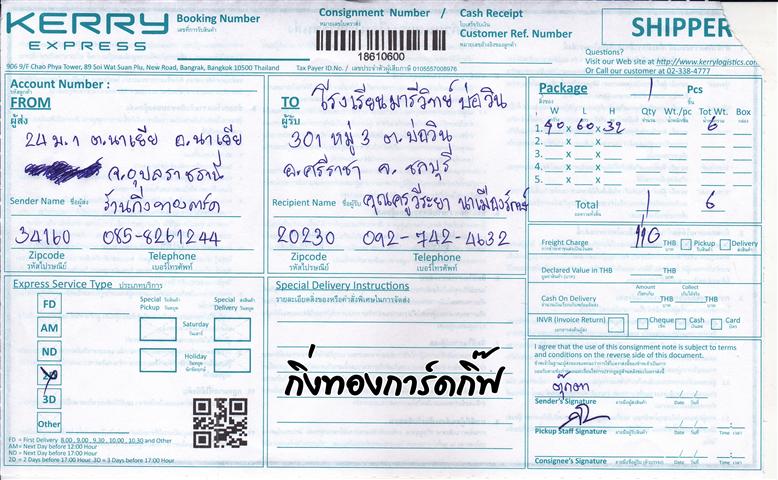 KERRY
EXPRESS
Booking Number
เลขที่การรับสินค้า
Consignment Number /
หมายเลขใบตราส่ง
18610600
Cash Receipt
ใบเสร็จรับเงิน
Customer Ref. Number
SHIPPER
Questions?
Visit our Web site at http://www.kerrylogistics.com
Or Call our customer at 02-338-4777
906 9/F Chao Phya Tower, 89 Soi Wat Suan Plu, New Road, Bangrak, Bangkok 10500 Thailand
Tax Payer ID.No. / เลขประจำตัวผู้เสียภาษี 0105557008976
Account Number :
รหัสลูกค้า
FROM
ผู้ส่ง
24 ม.1 ต.นาเยีย อ.นาเยีย
จ.อุบลราชธานี
Sender Name ชื่อผู้ส่ง ร้านกิ่งทองการ์ด
34160 085-8261244
Zipcode Telephone
รหัสไปรษณีย์ เบอร์โทรศัพท์
TO
ผู้รับ
โรงเรียนมารีวิทย์ บ่อวิน
301 หมู่ 3 ต.บ่อวิน
อ.ศรีราชา จ.ชลบุรี
Recipient Name ชื่อผู้รับ คุณครูวีระยา
20230 092-742-4632
Zipcode Telephone
รหัสไปรษณีย์ เบอร์โทรศัพท์
Package 1 Pcs
W L H Qty Wt./pc Tot Wt. Box
1. 40 x 60 x 32 6
2. x x
3. x x
4. x x
5. x x
Total 1 6
Freight Charge 110 THB Pickup Delivery
Declared Value in THB THB
Amount Collect
Cash On Delivery THB THB
INVR (Invoice Return) Cheque Cash Card
Express Service Type ประเภทบริการ
Special Pickup
Special Delivery
FD
AM
ND
2D
3D
Other
Saturday
วันเสาร์
Holiday
วันหยุด
FD = First Delivery 8.00 , 9.00 , 9.30 , 10.00 , 10.30 and Other
AM = Next Day before 12:00 Hour
ND = Next Day before 17:00 Hour
2D = 2 Days before 17:00 Hour 3D = 3 Days before 17:00 Hour
Special Delivery Instructions
รายละเอียดสิ่งของหรือคำสั่งพิเศษในการจัดส่ง
กิ่งทองการ์ดกิ๊ฟ
I agree that the use of this consignment note is subject to terms
and conditions on the reverse side of this document.
ตุ๊กตา
Sender's Signature Date วันที่
Pickup Staff Signature Date วันที่ Time เวลา
Consignee's Signature Date วันที่ Time เวลา